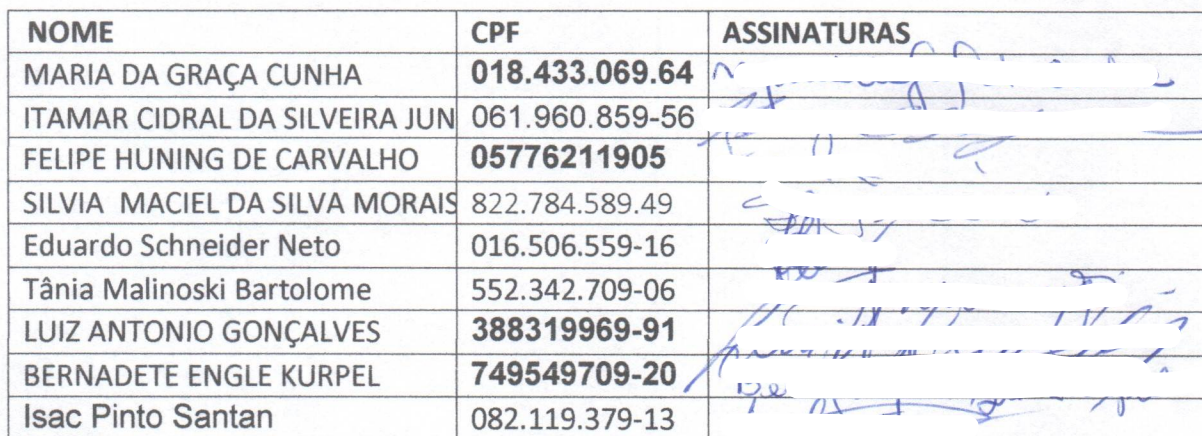 NOME CPF ASSINATURAS
MARIA DA GRAÇA CUNHA 018.433.069.64
ITAMAR CIDRAL DA SILVEIRA JUN 061.960.859-56
FELIPE HUNING DE CARVALHO 05776211905
SILVIA MACIEL DA SILVA MORAIS 822.784.589.49
Eduardo Schneider Neto 016.506.559-16
Tânia Malinoski Bartolome 552.342.709-06
LUIZ ANTONIO GONÇALVES 388319969-91
BERNADETE ENGLE KURPEL 749549709-20
Isac Pinto Santan 082.119.379-13